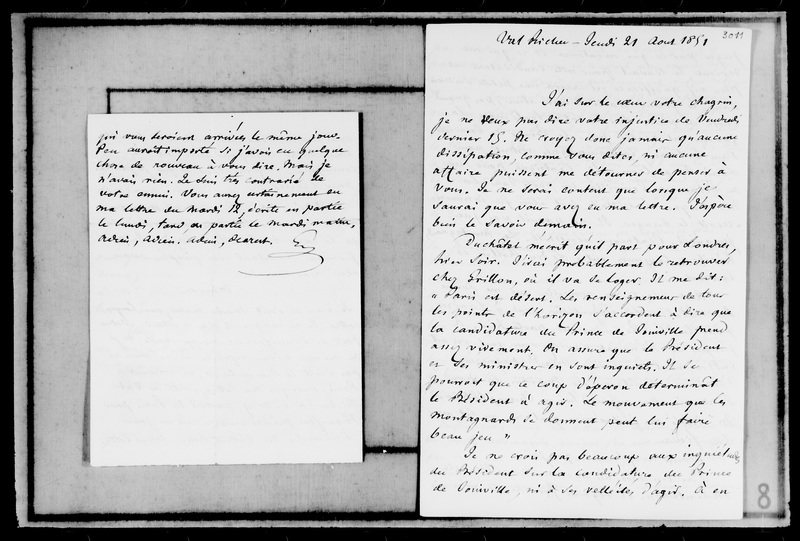 qui vous seroient arrivées le même jour.
Peu auroit importé si j'avois eu quelque
chose de nouveau à vous dire. Mais je
n'avais rien. Je suis très contrarié de
votre ennui. Vous aurez certainement eu
ma lettre du Mardi 12, écrite en partie
le lundi, en partie le mardi matin.
Adieu, Adieu. Adieu, dearest.
3011
Val Richer - Jeudi 21 Aout 1851
J'ai sur le cœur votre chagrin,
je ne veux pas dire votre injustice de Vendredi
dernier 15. Ne croyez donc jamais qu'aucune
dissipation, comme vous dites, ni aucune
affaire puissent me détourner de penser à
vous. Je ne serai content que lorsque je
saurai que vous avez eu ma lettre. J'espère
bien le savoir demain.
Duchâtel m'écrit qu'il part pour Londres,
hier soir. J'irai probablement le retrouver
chez Grillon, où il va se loger. Il me dit :
" Paris est désert. Les renseignemens de tous
les points de l'horizon s'accordent à dire que
la candidature du Prince de Joinville prend
assez vivement. On assure que le Président
et ses ministres en sont inquiets. Il se
pourroit que ce coup d'éperon determinât
le Président à agir. Le mouvement que les
montagnards se donnent peut lui faire
beau jeu "
Je ne crois pas beaucoup aux inquiétudes
du Président sur la candidature du Prince
de Joinville, ni à ses velléités d'agir. À en
8